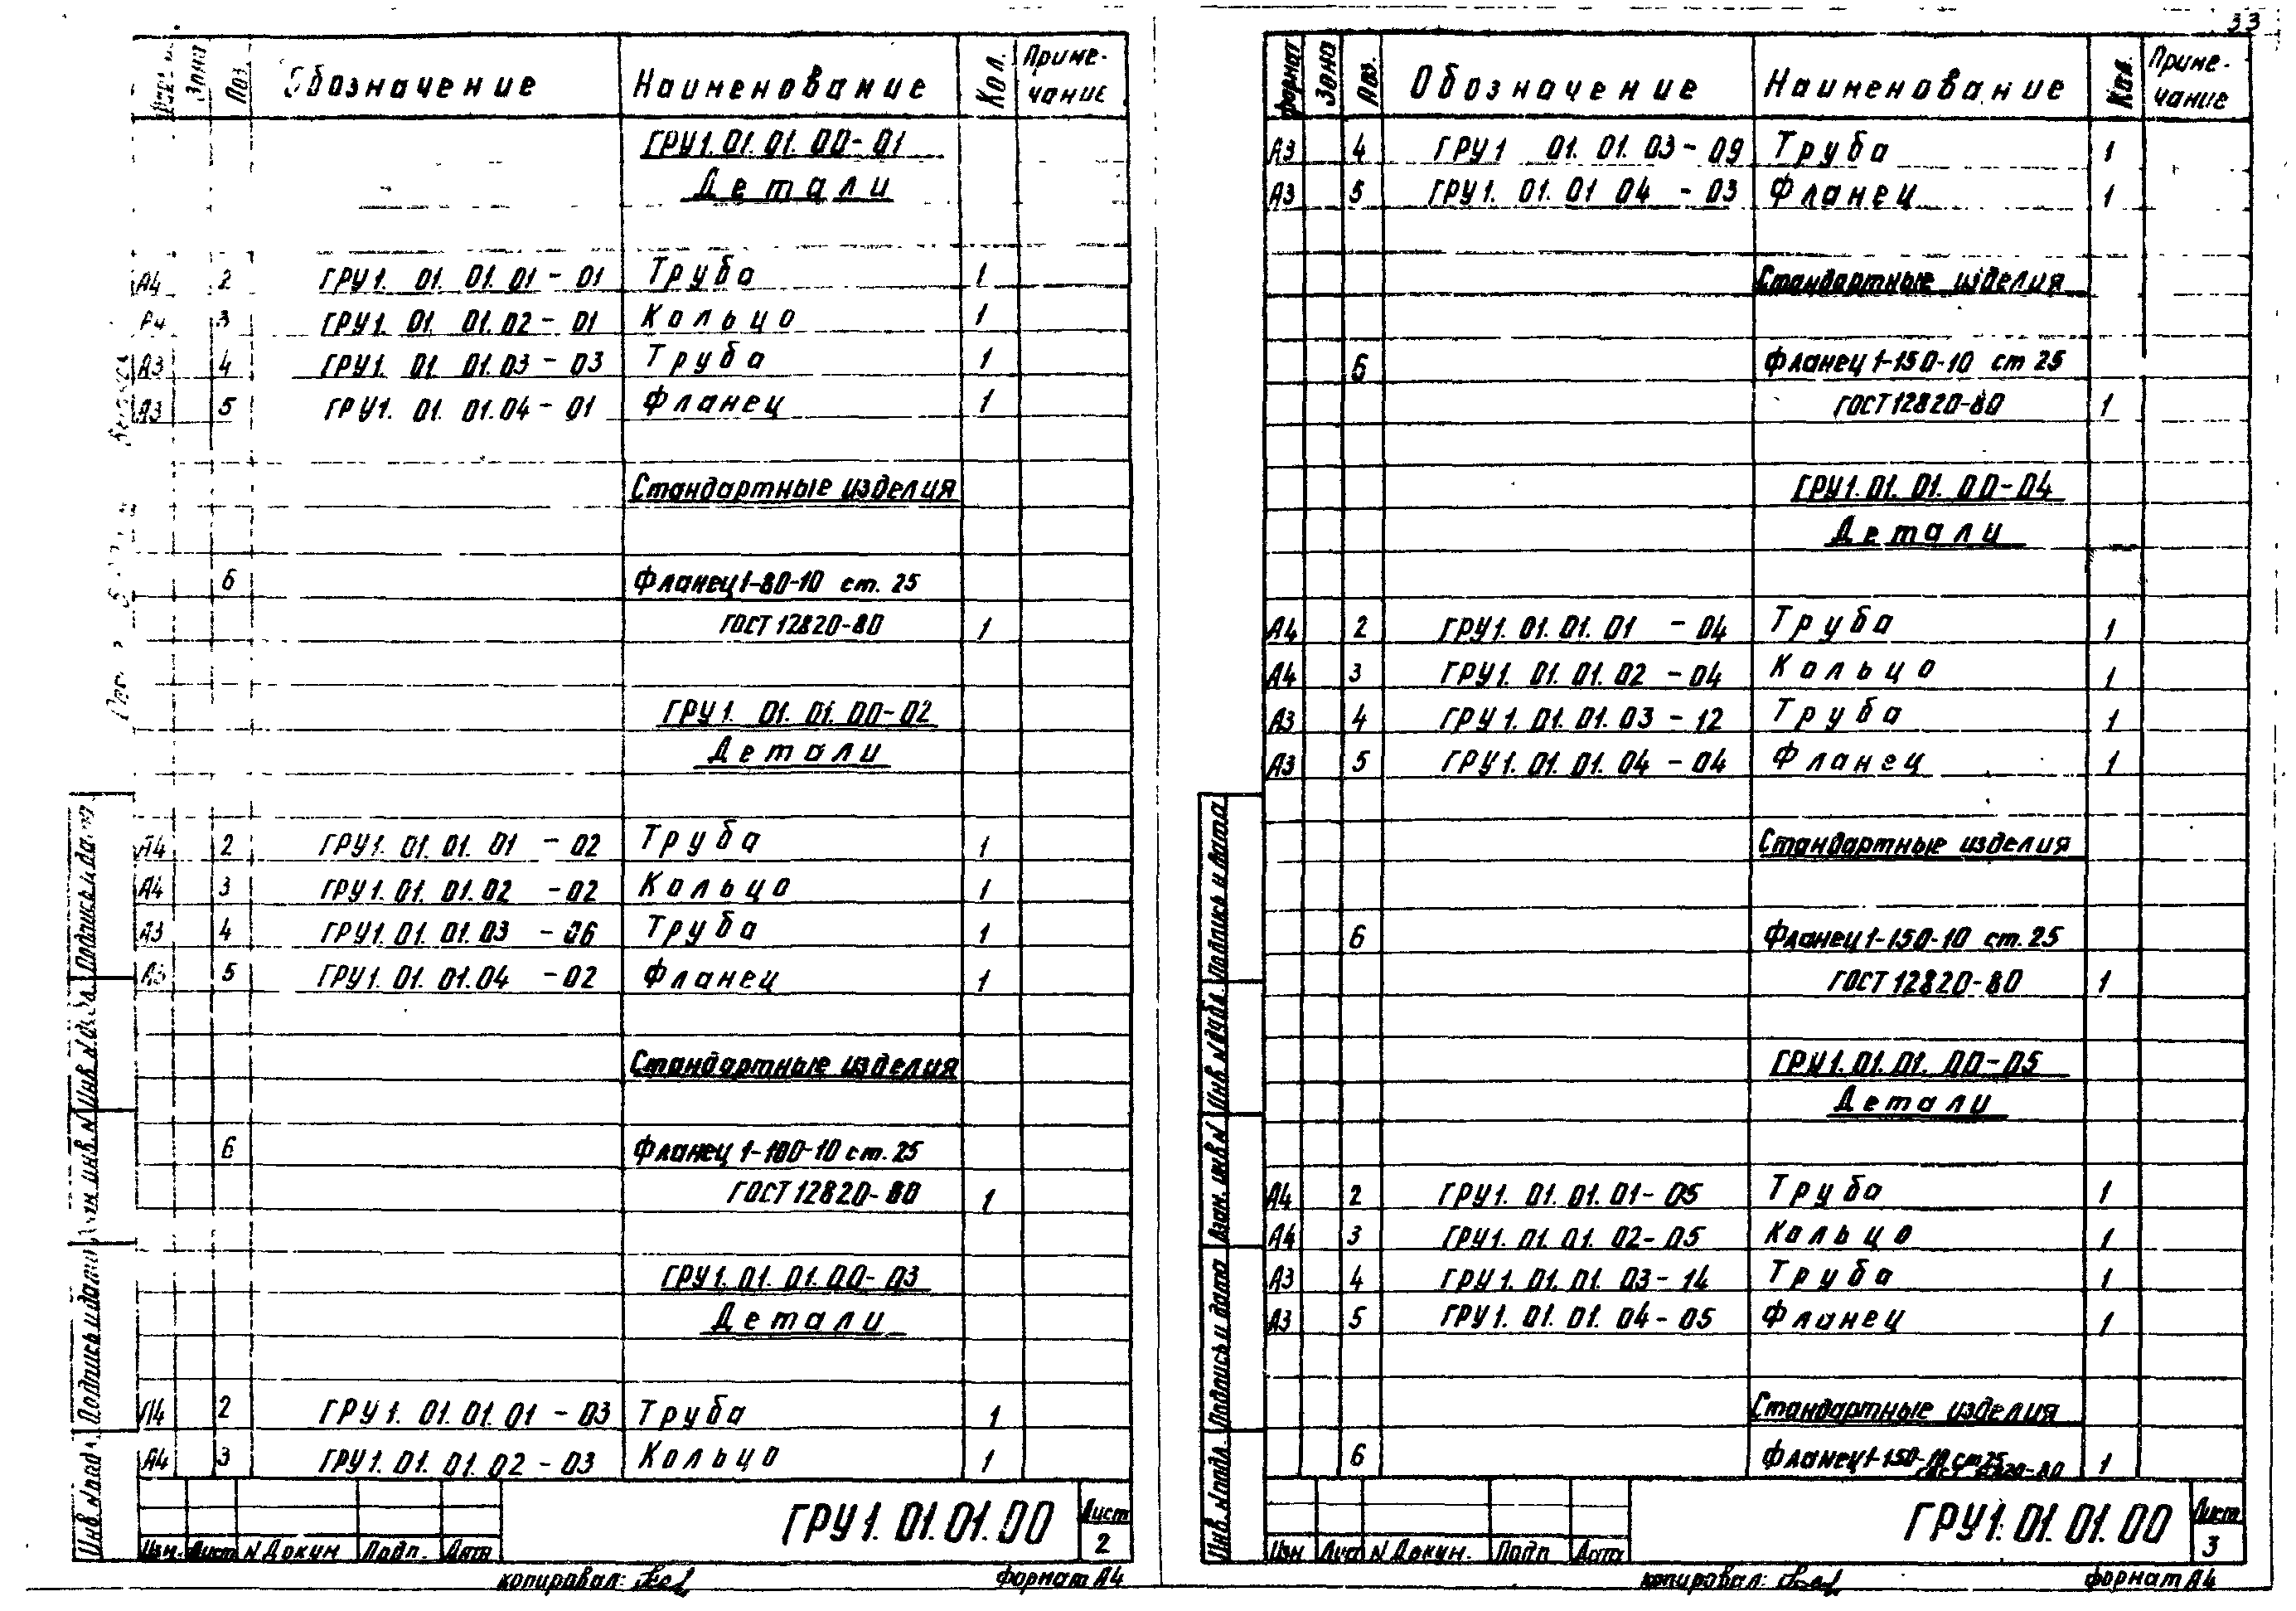 33
Зона Поз. Обозначение Наименование Кол. Приме-
чание
ГРУ1.01.01.00-01
Детали
А4 2 ГРУ1. 01. 01. 01-01 Труба 1
А4 3 ГРУ1. 01 01.02-01 Кольцо 1
А3 4 ГРУ1. 01 01.03-03 Труба 1
А3 5 ГРУ1. 01. 01.04-01 Фланец 1
Стандартные изделия
6 Фланец 1-80-10 ст. 25
ГОСТ 12820-80 1
ГРУ1. 01. 01. 00-02
Детали
А4 2 ГРУ1. 01. 01. 01 -02 Труба 1
А4 3 ГРУ1. 01. 01.02 -02 Кольцо 1
А3 4 ГРУ1. 01. 01. 03 -06 Труба 1
А3 5 ГРУ1. 01. 01.04 -02 Фланец 1
Стандартные изделия
6 Фланец 1-100-10 ст. 25
ГОСТ 12820-80 1
ГРУ1. 01. 01. 00-03
Детали
А4 2 ГРУ1. 01. 01. 01 - 03 Труба 1
А4 3 ГРУ1. 01. 01. 02 - 03 Кольцо 1
Инв. N подл. Подпись и дата инв. N Инв. N дубл. Подпись и дата
Изм. Лист N Докум Подп. Дата
ГРУ1. 01.01. 00
Лист
2
копировал:
формат А4
формат Зона Поз. Обозначение Наименование Кол. Приме-
чание
А3 4 ГРУ1 01. 01. 03-09 Труба 1
А3 5 ГРУ1. 01. 01 04 -03 Фланец 1
Стандартные изделия
6 Фланец 1-150-10 ст 25
ГОСТ 12820-80 1
ГРУ1. 01. 01. 00-04
Детали
А4 2 ГРУ1. 01. 01. 01 -04 Труба 1
А4 3 ГРУ1. 01. 01. 02 -04 Кольцо 1
А3 4 ГРУ1. 01. 01. 03 -12 Труба 1
А3 5 ГРУ1. 01. 01. 04 -04 Фланец 1
Стандартные изделия
6 Фланец 1-150-10 ст. 25
ГОСТ 12820-80 1
ГРУ1. 01. 01. 00-05
Детали
А4 2 ГРУ1. 01. 01. 01-05 Труба 1
А4 3 ГРУ1. 01. 01. 02-05 Кольцо 1
А3 4 ГРУ1. 01. 01. 03-14 Труба 1
А3 5 ГРУ1. 01. 01. 04-05 Фланец 1
Стандартные изделия
6 Фланец 1-150-10 ст 25
ГОСТ 12820-80 1
Инв. N подл. Подпись и дата Взам. инв. N Инв. N дубл. Подпись и дата
Изм Лист N Докум. Подп Дата
ГРУ1. 01. 01. 00
Лист
3
копировал:
формат А4